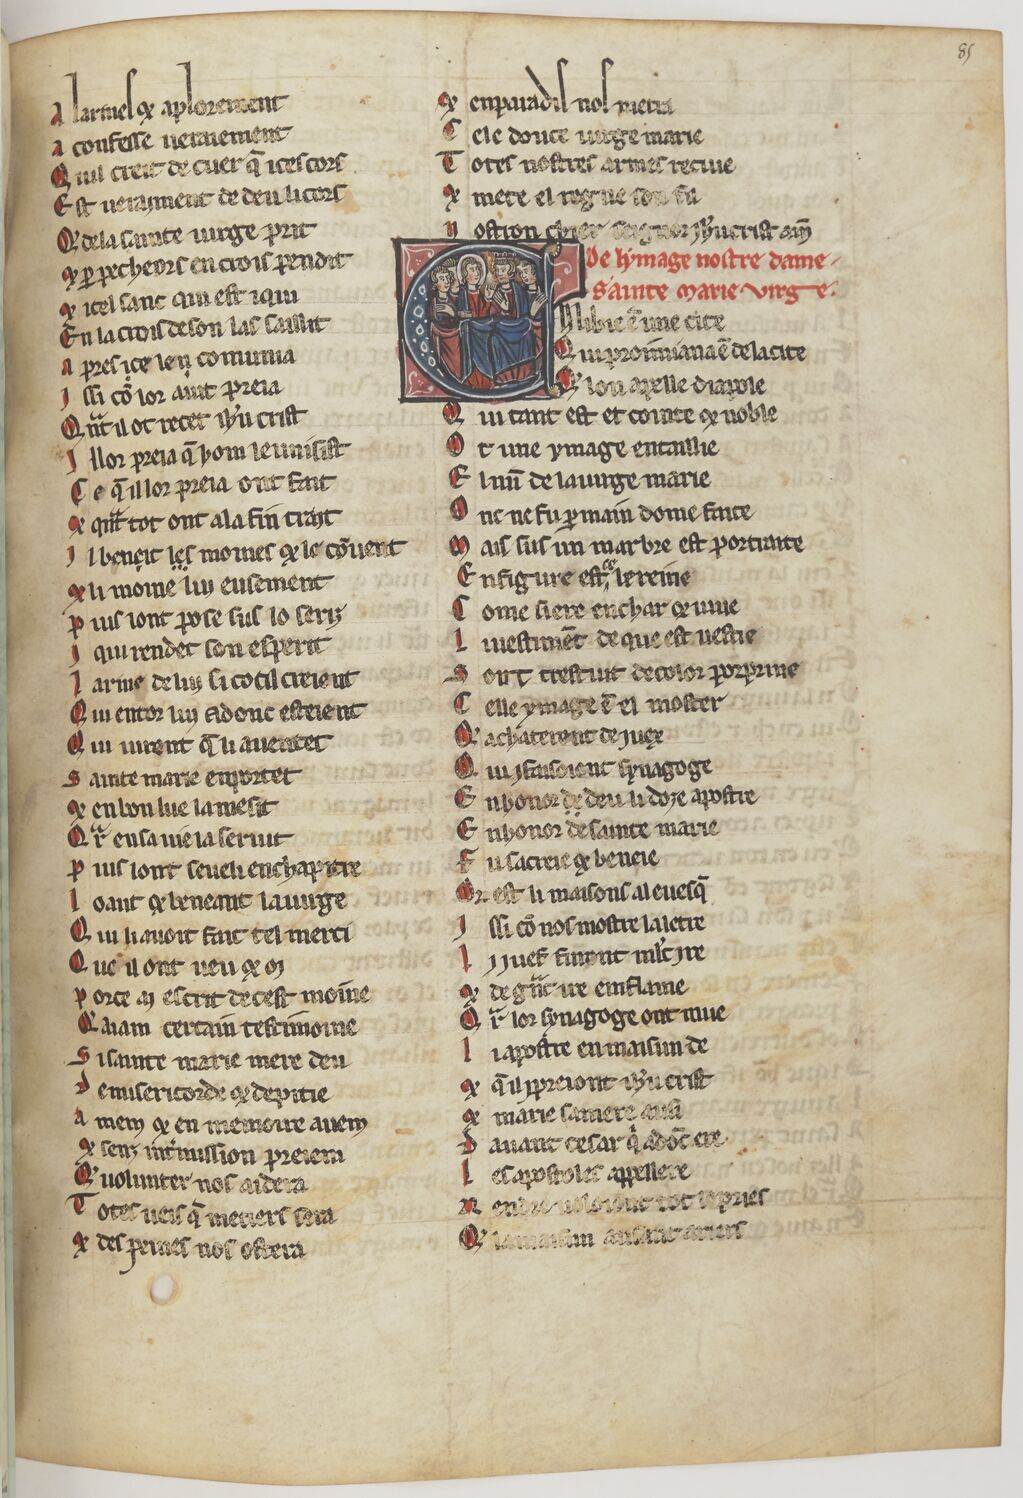 85
A larmes ⁊ a plorement
A confesse ueraiement
Qui creit de cuer q̃ ices cors
Est uerayment de deu li cors
Q de la sainte uirge prit
⁊ p pecheors en crois pendit
⁊ icel sanc qui est iqui
En la crois de son las sailit
A pres ice le
I ssi cõ lor auit preia
Qñt il ot recet ihu crist
I llor preia q̃ hom le
C e q̃ il lor preia ont fait
⁊ qñt tot ont a la fin trait
I l beneit les moines ⁊ le cõuent
⁊ li moine lui eusement
P uis lont pose sus lo
I qui rendet son esperit
L arme de luy si co cil creient
Qui entor luy adonc esteient
Qui uirent q̃ li
S ainte marie enportet
⁊ en bon lue la mesit
Qr en sa uie la seruit
P uis lont seueli en chapitre
L oant ⁊ beneant la uirge
Qui li auoit fait tel merci
Que il ont ueu ⁊ oi
P orce ai escrit de cest moine
Q aiam certain testimoine
S i sainte marie mere deu
D e misericorde ⁊ de pitie
A mem ⁊ en memoire auem
⁊ senz intmission preiera
Q uolunter nos aidera
T otes ueis q̃ metiers sera
⁊ des peines nos ostera
⁊ en paradis nos metra
C ele douce uirge marie
T otes nostres armes reciue
⁊ mete el regne son fil
N ostron chier seignor ihu crist am̃
De lymage nostre dame
sainte marie virge.
EN libie ẽ une cite
Qui proimiana ẽ de la cite
Q lon apelle diapole
Qui tant est et cointe ⁊ noble
O t une ymage entaillie
E lnũ de la uirge marie
O nc ne fu p main dome faite
M ais sus un marbre est portraite
E n figure est la reine
C ome si ere en char ⁊ uiue
L i uestimẽt de que est uestie
S ont trestuit de color porprine
C elle ymage ẽ el moster
Q achaterent de iuex
Qui i faisoient synagoge
E nhonor de deu li doze apostre
E nhonor de sainte marie
F u sacree ⁊ beneie
Or est li maisons al euesq̃
I ssi cõ nos mostre la letre
L i iuef furent
⁊ de gñt ire enflame
Qr lor synagoge ont mue
L i apostre en maisun de
⁊ q̃ il i preiont ihu crist
⁊ marie sa mere ausi
D auant cesar q̃ adõc ere
L es apostoles appellere
R endre uoloiont tot lo pries
Q la maisun